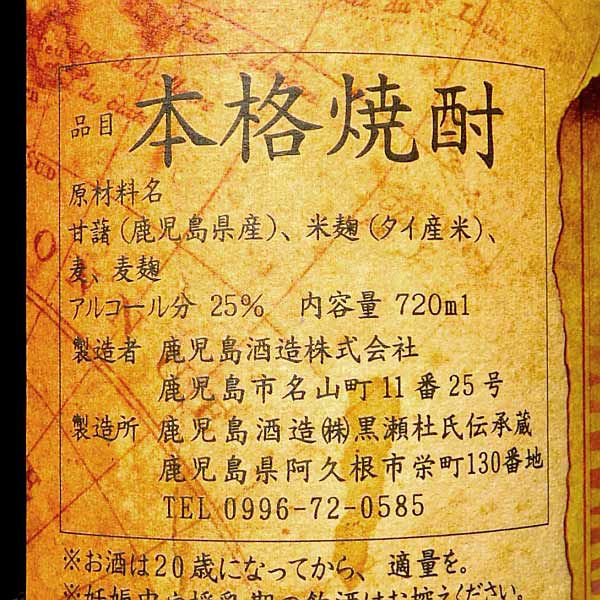 品目 本格焼酎
原材料名
甘藷(鹿児島県産)、米麹(タイ産米)、
麦、麦麹
アルコール分 25% 内容量 720ml
製造者 鹿児島酒造株式会社
鹿児島市名山町11番25号
製造所 鹿児島酒造㈱黒瀬杜氏伝承蔵
鹿児島県阿久根市栄町130番地
TEL 0996-72-0585
※お酒は20歳になってから、適量を。
※妊娠中や授乳期の飲酒はお控えください。